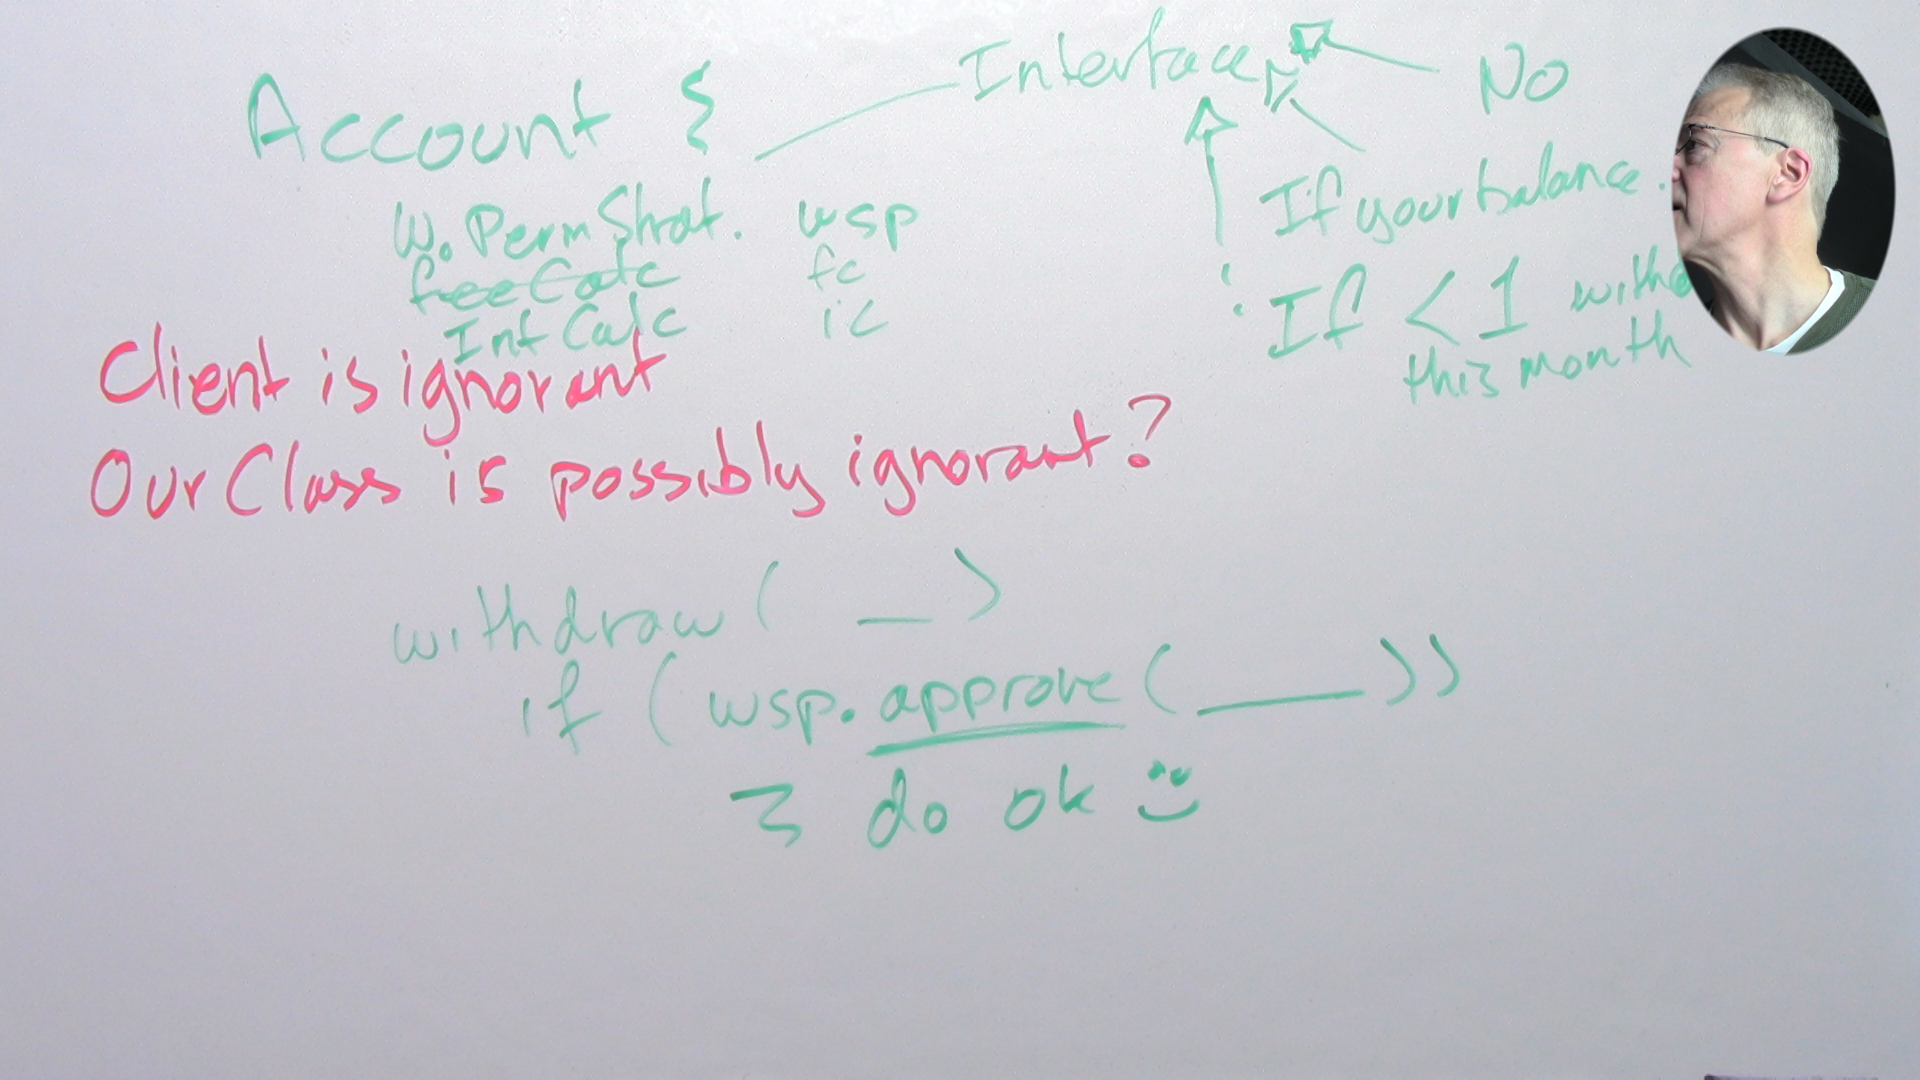 Account {
Interface
No
W. Perm Strat. wsp
If your balance.
feeCalc fc
If < 1
Int Calc ic
this month
Client is ignorant
Our Class is possibly ignorant?
withdraw ( _ )
if ( wsp. approve ( ___ ))
do ok